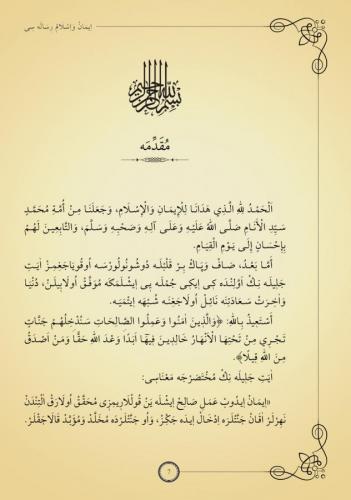 ايمان وَاِسْلَامْ رِسَالَه سِى
بِسْمِ اللهِ الرَّحْمٰنِ الرَّحِيمِ
مُقَدِّمَه
اَلْحَمْدُ لِلّٰهِ الَّذِي هَدَانَا لِلْإِيمَانِ وَالْإِسْلَامِ، وَجَعَلَنَا مِنْ أُمَّةِ مُحَمَّدٍ
سَيِّدِ الْأَنَامِ صَلَّى اللهُ عَلَيْهِ وَعَلَى آلِهِ وَصَحْبِهِ وَسَلَّمَ، وَالتَّابِعِينَ لَهُمْ
بِإِحْسَانٍ إِلَى يَوْمِ الْقِيَامِ.
أَمَّا بَعْدُ، صَافْ وَپَاكْ بِرْ قَلْبْلَه دُوشُونُولُورْسَه اُوقُويَاجَغِمِزْ اٰيَتِ
جَلِيلَه بَكْ اَوَّلِنْدَه كِى اِيكِى جُمْلَه يِى اِيشْلَمَكَه مُوَفَّقْ اُولَابِيلَنْ، دُنْيَا
وَآخِرَتْ سَعَادَتِنَه نَائِلْ اُولَاجَغِنَه شُبْهَه اِيتْمَيَه.
أَسْتَعِيذُ بِاللهِ: ﴿وَالَّذِينَ اٰمَنُوا وَعَمِلُوا الصَّالِحَاتِ سَنُدْخِلُهُمْ جَنَّاتٍ
تَجْرِي مِنْ تَحْتِهَا الْأَنْهَارُ خَالِدِينَ فِيهَا أَبَدًا وَعْدَ اللهِ حَقًّا وَمَنْ اَصْدَقُ
مِنَ اللهِ قِيلًا﴾.
اٰيَتِ جَلِيلَه بَكْ مُخْتَصَرْجَه مَعْنَاسِى:
«اِيمَانْ اِيدُوبْ عَمَلِ صَالِحْ اِيشْلَه يَنْ قُولْلَارِيمِزِى مُحَقَّقْ اُولَارَقْ اَلْتِنْدَنْ
نَهِرْلَرْ اَقَانْ جَنَّتْلَرَه اِدْخَالْ اِيدَه جَكِزْ، وَاُو جَنَّتْلَرْدَه مُخَلَّدْ وَمُؤَبَّدْ قَالَاجَقْلَرْ.